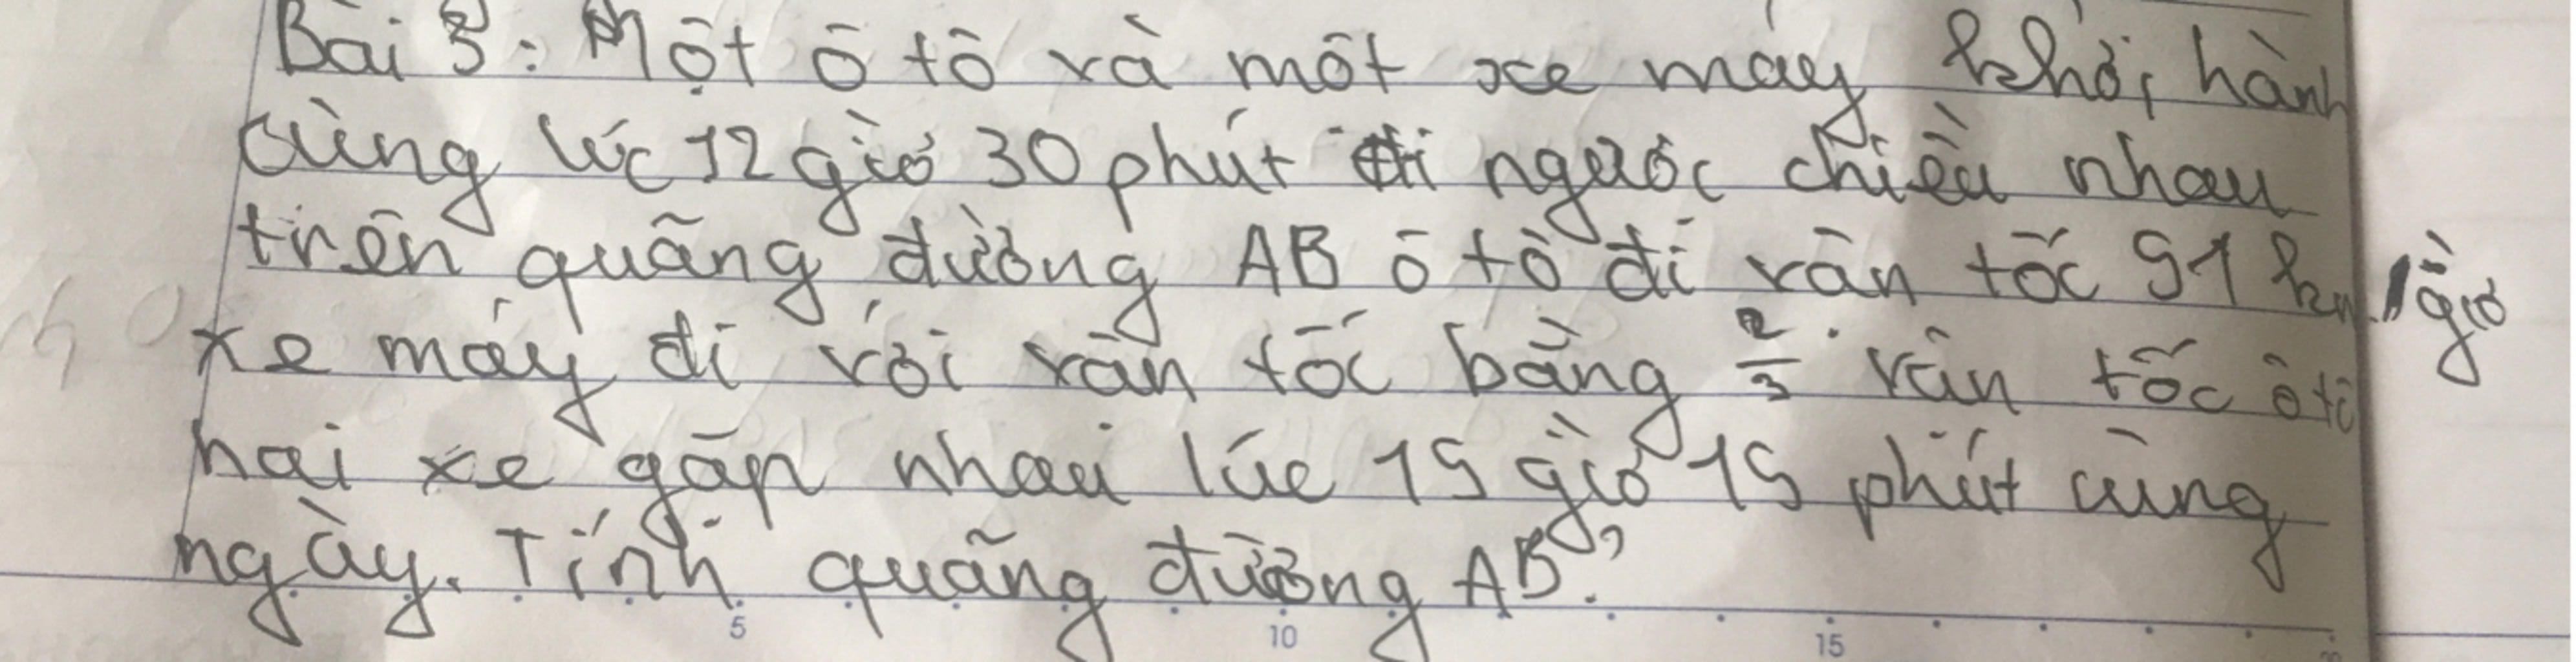 Bài 3: Một ô tô và một xe máy khởi hành
cùng lúc 12 giờ 30 phút đi ngược chiều nhau
trên quãng đường AB ô tô đi vận tốc 51 km/giờ
xe máy đi với vận tốc bằng 2/3 vận tốc ô tô
hai xe gặp nhau lúc 15 giờ 15 phút cùng
ngày. Tính quãng đường AB?
5 10 15